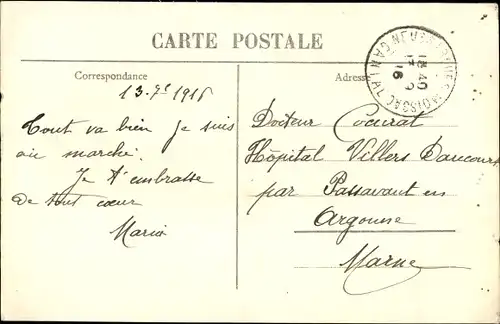 CARTE POSTALE
Correspondance
Adresse
13-7e 1916
Tout va bien je suis
au marché.
Je t'embrasse
de tout cœur
Maria
Docteur Cocurat
Hôpital Villers Daucourt
par Passavant en
Argonne
Marne